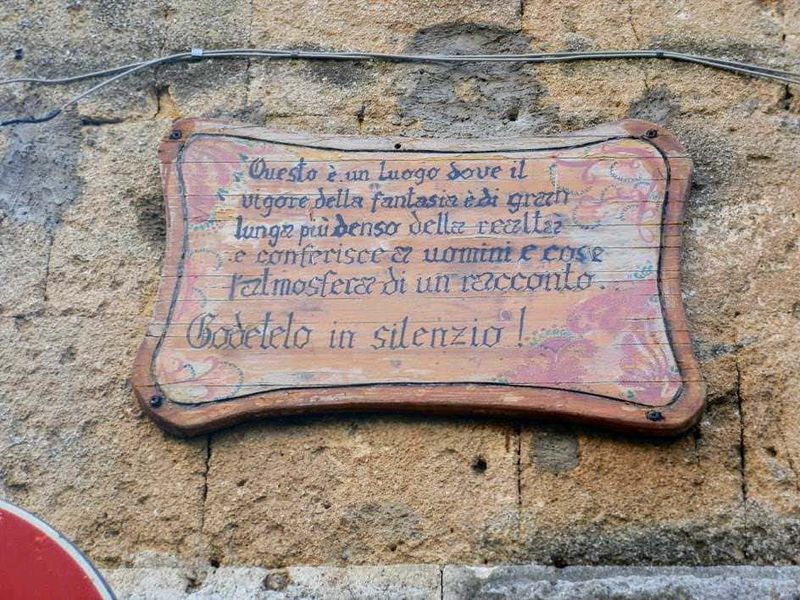 Questo è un luogo dove il
vigore della fantasia è di gran
lunga più denso della realtà
e conferisce a uomini e cose
l'atmosfera di un racconto..
Godetelo in silenzio!